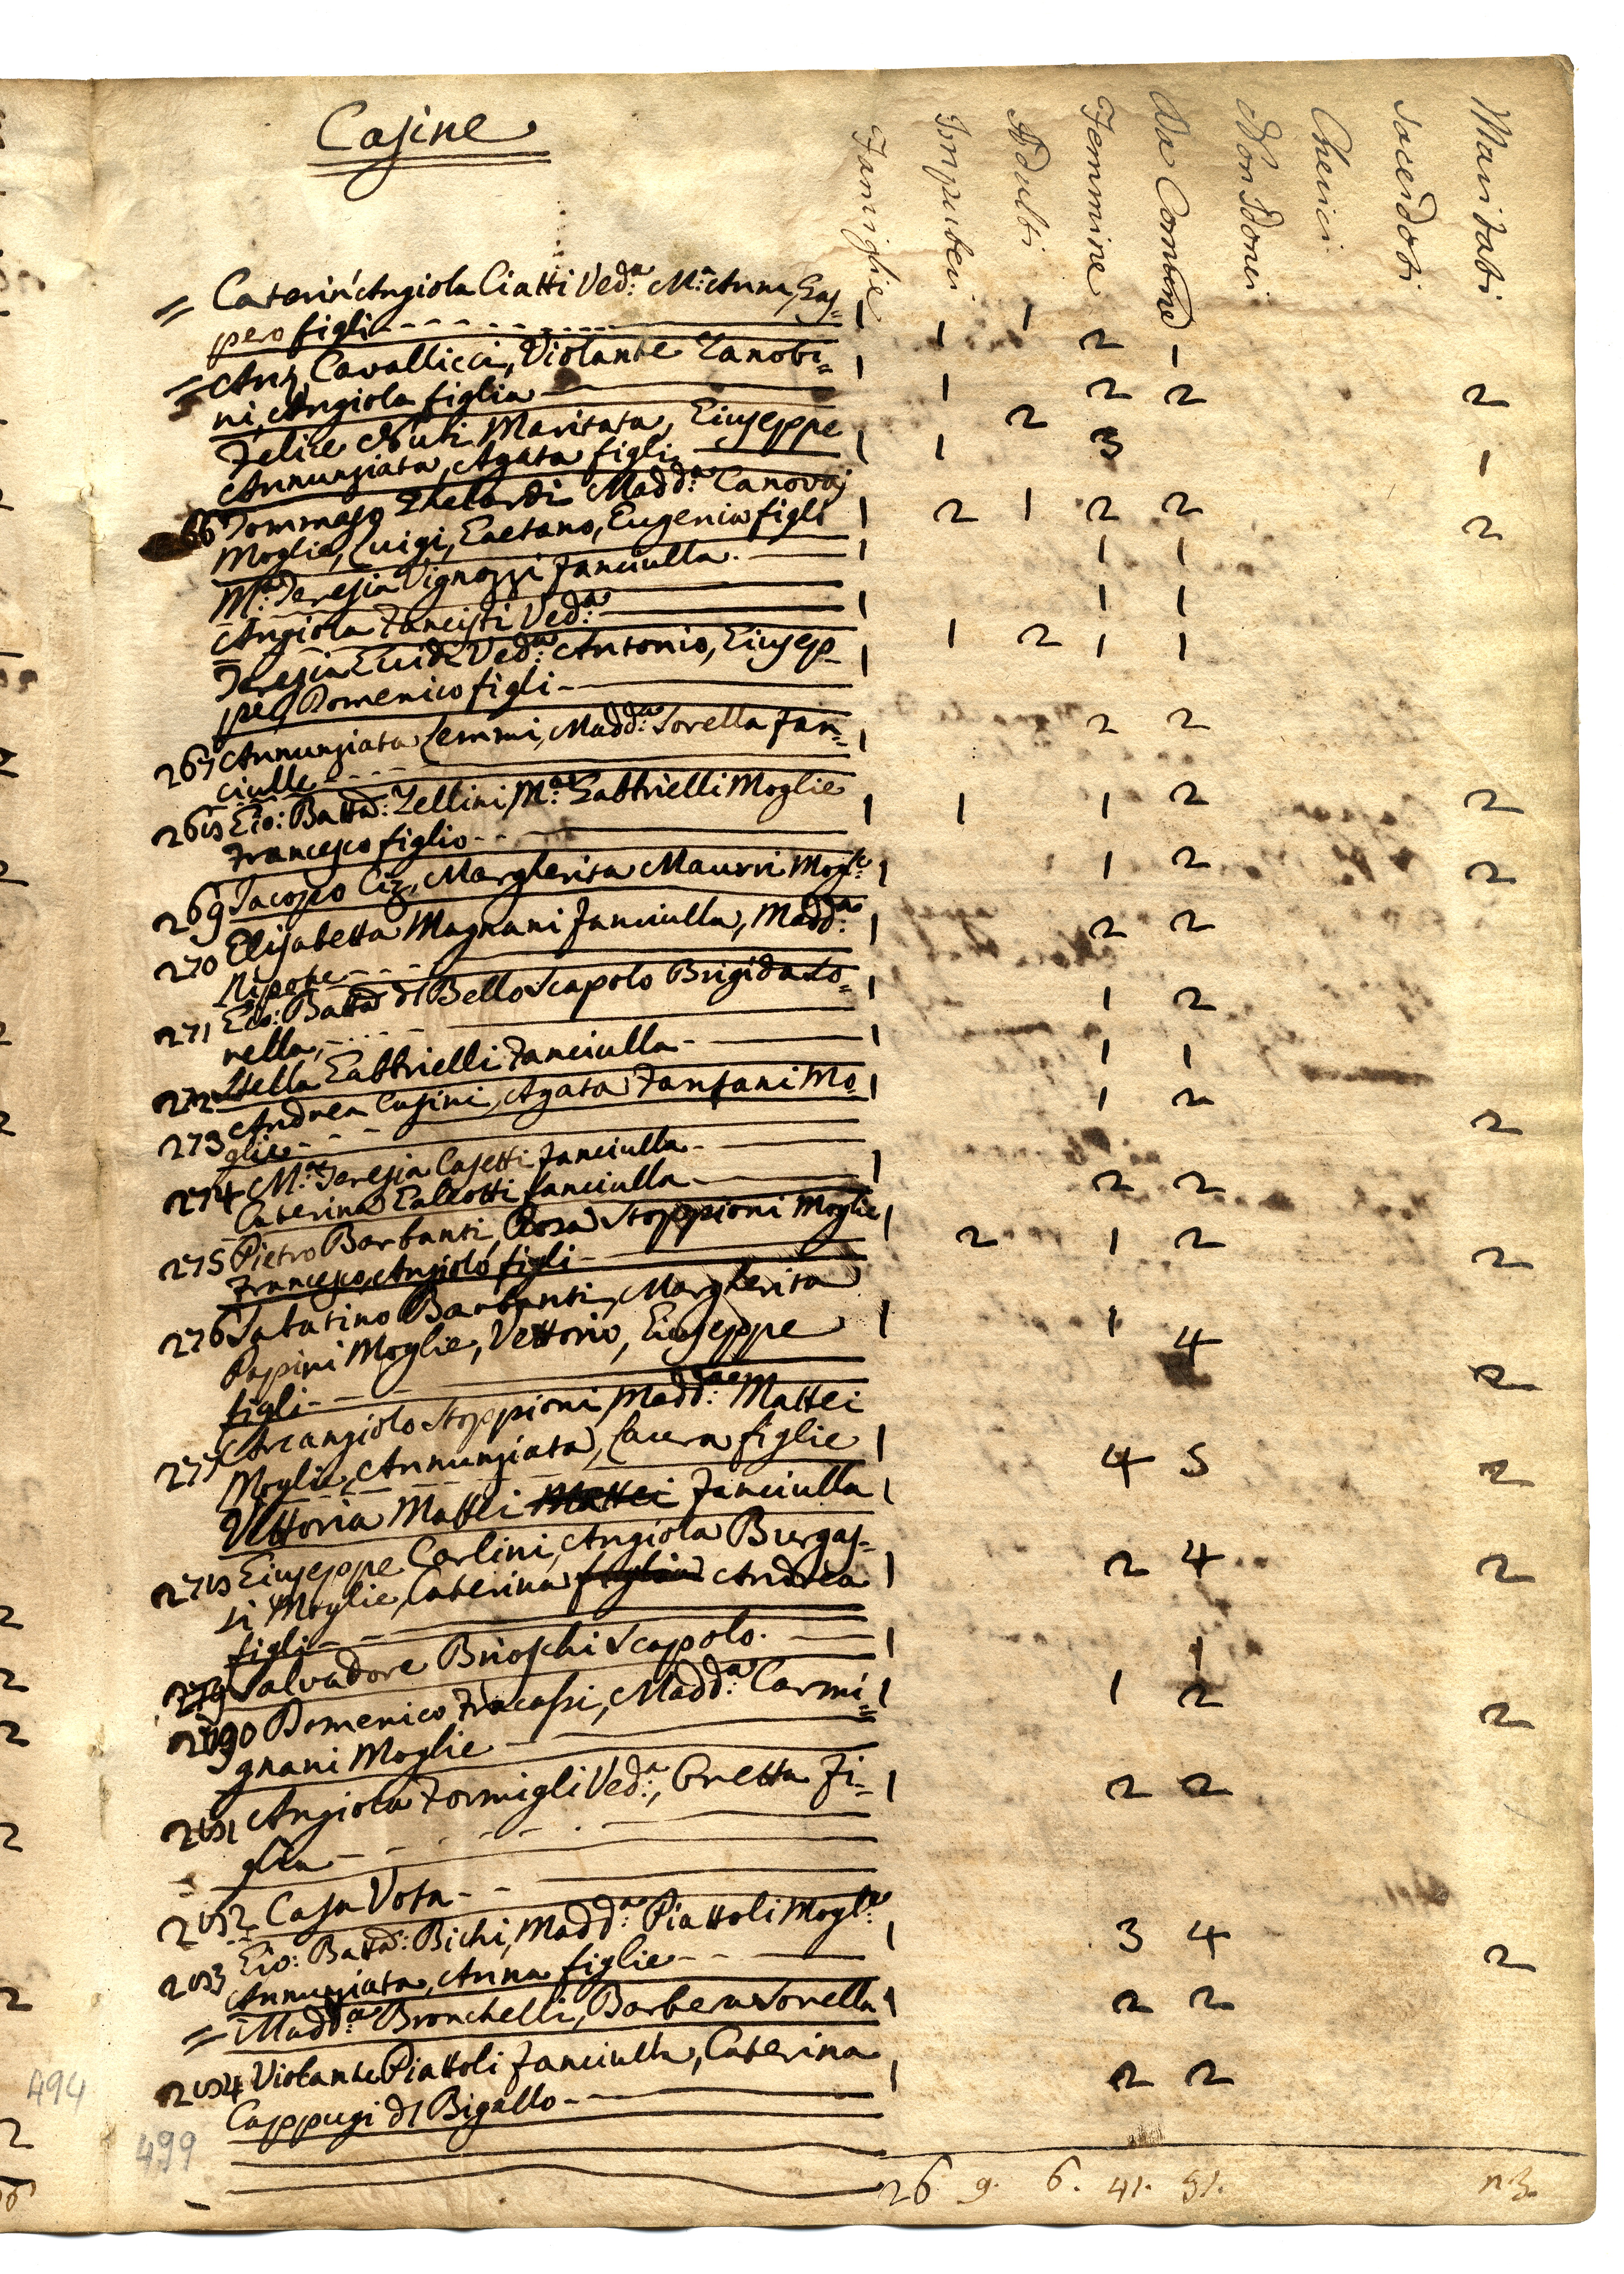 Casine
Famiglie Impuberi Adulti Femmine Da Comune Non Idonei Cherici Sacerdoti Maritati
= Caterin'Angiola Ciatti Ved.a M.a Anna, Gas= 1 1 1 2 1
pero figli
= Ant. Cavallicci, Violante Zanobi= 1 1 2 2 2
ni, Angiola figlia
Felice Nuti Maritata, Giuseppe 1 1 2 3 1
Annunziata, Agata figli
66 Tommaso Ghelardi Madd.a Canovaj
Moglie, Luigi, Gaetano, Eugenia figli 1 2 1 2 2 2
M.a Teresia Vignozzi fanciulla 1 1 1
Angiola Ved.a 1 1 1
Teresia Guidi Ved.a Antonio, Giusep= 1 1 2 1 1
pe, Domenico figli
267 Annunziata Lemmi, Madd.a Sorella fan= 1 2 2
ciulle
268 Gio: Batta: Zellini M.a Gabbrielli Moglie 1 1 1 2 2
Francesco figlio
269 Jacopo Madrgherita Maurri Mogl.e 1 1 2 2
270 Elisabetta Magnani fanciulla, Madd.a 1 2 2
Nipote
271 Gio: Batta dl Bello Scapolo Brigida So= 1 1 2
rella
272 Stella Gabbrielli fanciulla 1 1 1
273 Andrea Casini, Agata Fanfani Mo= 1 1 2 2
glie
274 M.a Teresia Casetti fanciulla 1 2 2
Caterina Galeotti fanciulla
275 Pietro Barbanti, Rosa Stoppioni Moglie 1 2 1 2 2
Francesco, Angiolo figli
276 Sabatino Barbanti, Margherita
Papini Moglie, Vettorio, Giuseppe 1 1 4 2
figli
277 Arcangiolo Stoppioni Madd.a Mattei
Moglie, Annunziata, Laura figlie 1 4 5 2
Vittoria Mattei Mattei fanciulla 1
278 Giuseppe Carlini, Angiola Burgas=
si Moglie, Caterina figlia Andrea 1 2 4 2
figli
279 Salvadore Brioschi Scapolo 1 1
280 Domenico Fracassi, Madd.a Carmi= 1 1 2 2
gnani Moglie
281 Angiola Formigli Ved.a, Oretta Fi= 1 2 2
glia
282 Casa Vota
283 Gio: Batta: Bichi, Madd.a Piattoli Mogl.e 1 3 4 2
Annunziata, Anna figlie
= Madd.a Bronchelli, Barbera Sorella 1 2 2
284 Violante Piattoli fanciulla, Caterina 1 2 2
Cappugi dl Bigallo
26 9. 6. 41. 51. 23.
494
499